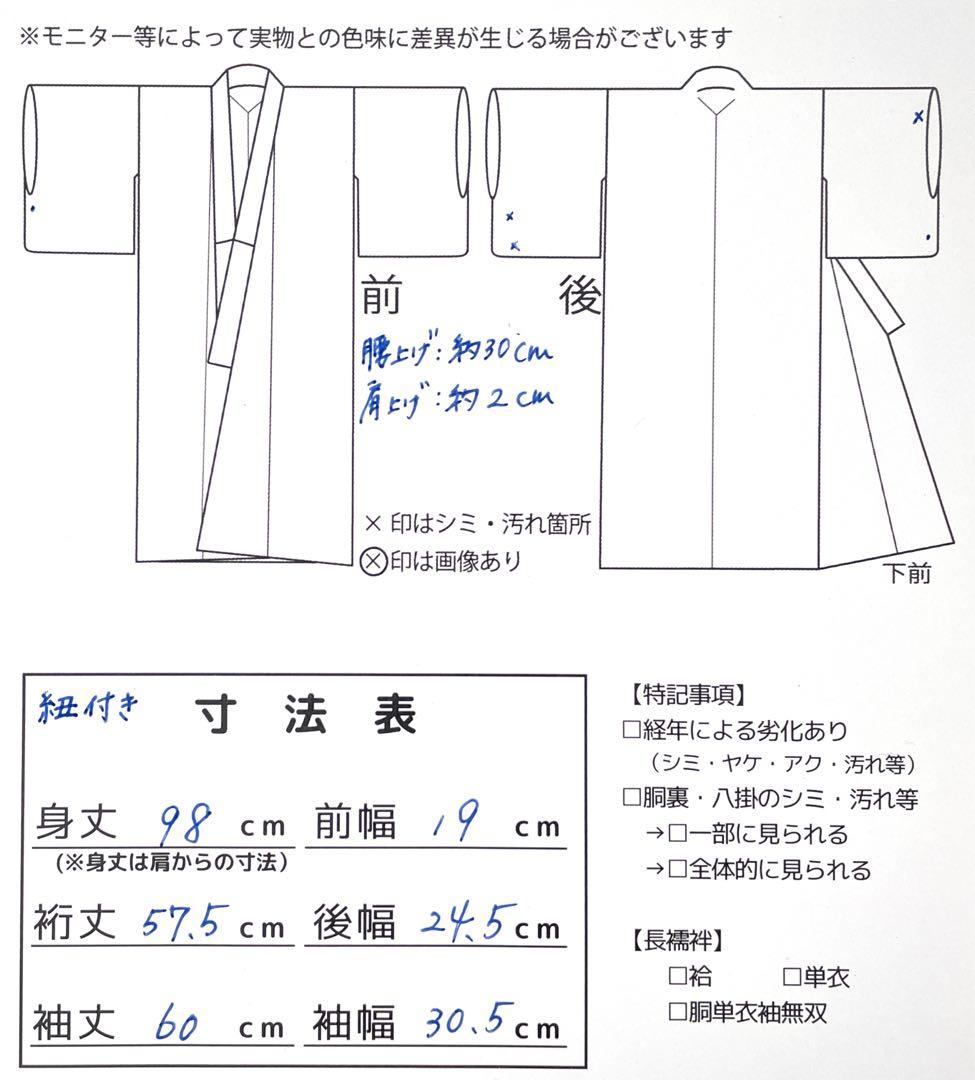 ※モニター等によって実物との色味に差異が生じる場合がございます
前
後
腰上げ:約30cm
肩上げ:約2cm
× 印はシミ・汚れ箇所
Ⓧ印は画像あり
下前
紐付き 寸法表
身丈 98 cm 前幅 19 cm
(※身丈は肩からの寸法)
裄丈 57.5 cm 後幅 24.5 cm
袖丈 60 cm 袖幅 30.5 cm
【特記事項】
□経年による劣化あり
(シミ・ヤケ・アク・汚れ等)
□胴裏・八掛のシミ・汚れ等
→□一部に見られる
→□全体的に見られる
【長襦袢】
□袷 □単衣
□胴単衣袖無双